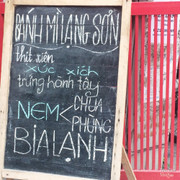 BÁNH MÌ LẠNG SƠN
thịt xiên
xúc xích
trứng hành tây
NEM CHUA
PHÙNG
BIA LẠNH